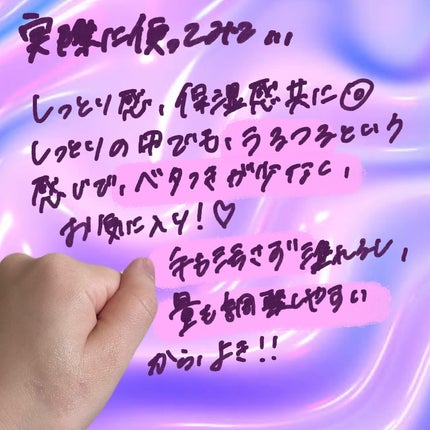 実際に使ってみて...
しっとり感、保湿感共に◎
しっとりの中でも、うるつるという
感じで、ベタつきが少ない、
お気に入り!♡
手も汚さず塗れるし、
量も調整しやすい
から、よき!!